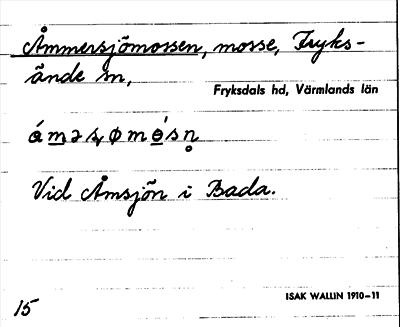 Åmmersjömossen, mosse, Fryks-
ände sn,
Fryksdals hd, Värmlands län
Vid Åmsjön i Bada.
ISAK WALLIN 1910–11
15